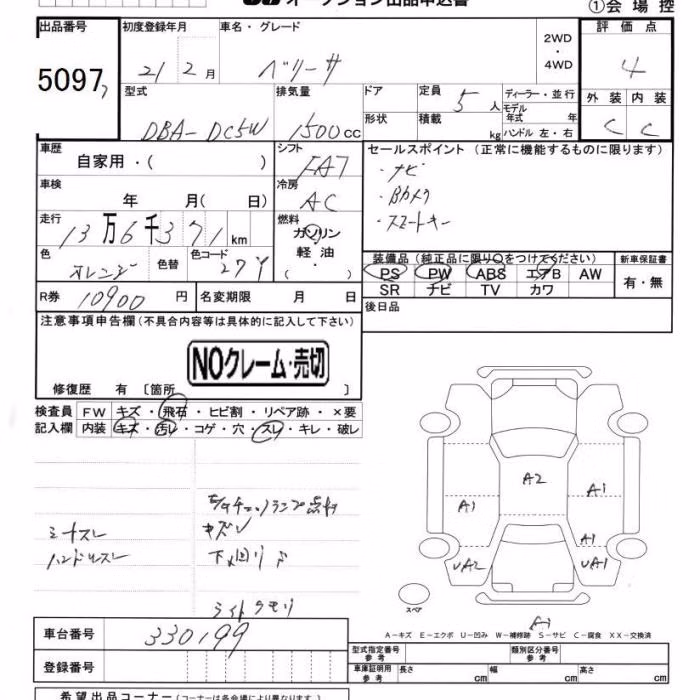 オークション出品申込書
①会場控
出品番号 初度登録年月 車名・グレード 2WD・4WD 評価点
5097 21年2月 ベリーサ 4
型式 排気量 ドア 定員 ディーラー・並行 外装 内装
DBA-DC5W 1500cc 5人 モデル年式 年 C C
形状 積載 kg ハンドル 左・右
車歴 シフト セールスポイント (正常に機能するものに限ります)
自家用・( ) FA7 ・ナビ
車検 冷房 ・Bカメラ
年 月( 日) AC ・スマートキー
走行 燃料
13万6千371km ガソリン・軽油
( )
色 色替 色コード 装備品 (純正品に限り○をつけてください) 新車保証書
オレンジ 27Y PS PW ABS エアB AW 有・無
SR ナビ TV カワ
R券 10900円 名変期限 月 日 後日品
注意事項申告欄 (不具合内容等は具体的に記入して下さい)
NOクレーム・売切
修復歴 有 〔箇所 〕
検査員 FW キズ・飛石・ヒビ割・リペア跡・×要
記入欄 内装 キズ・汚レ・コゲ・穴・スレ・キレ・破レ
A2
A1 A1
シートスレ キズ凹 A1
ハンドルスレ 下廻りサビ UA2 UA1
ライトクモリ
スペア
A1
A-キズ E-エクボ U-凹み W-補修跡 S-サビ C-腐食 XX-交換済
車台番号 330199
型式指定番号 参考 類別区分番号 参考
登録番号 車庫証明用 参考 長さ cm 幅 cm 高さ cm
希望出品コーナー (コーナーは各会場により異なります)